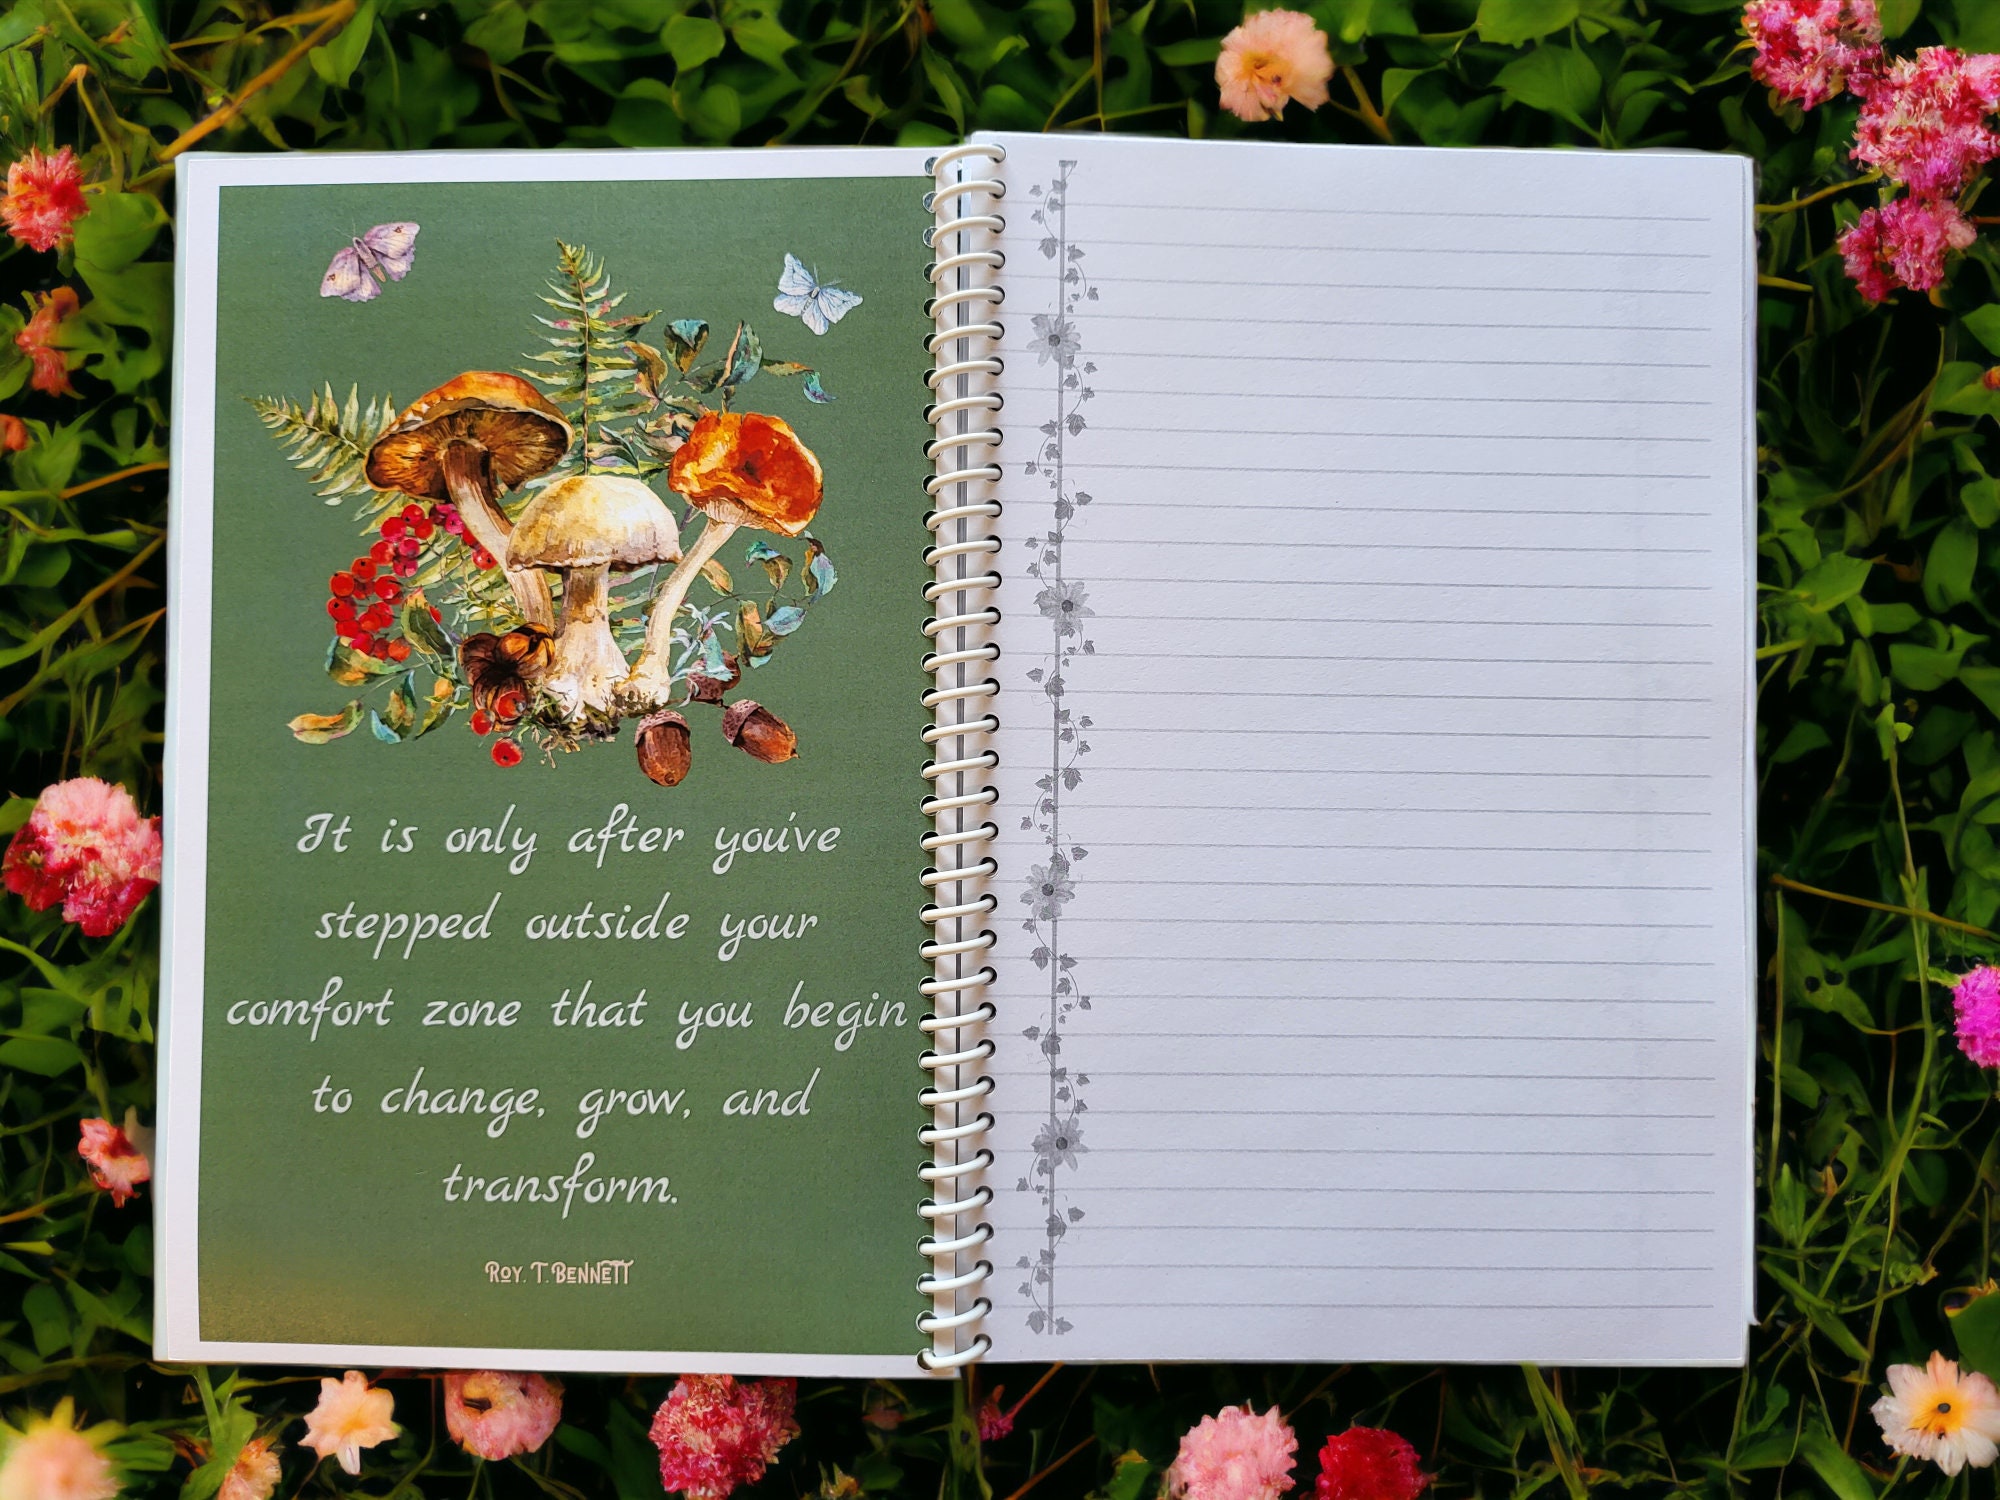 It is only after you've
stepped outside your
comfort zone that you begin
to change, grow, and
transform.
Roy. T. Bennett